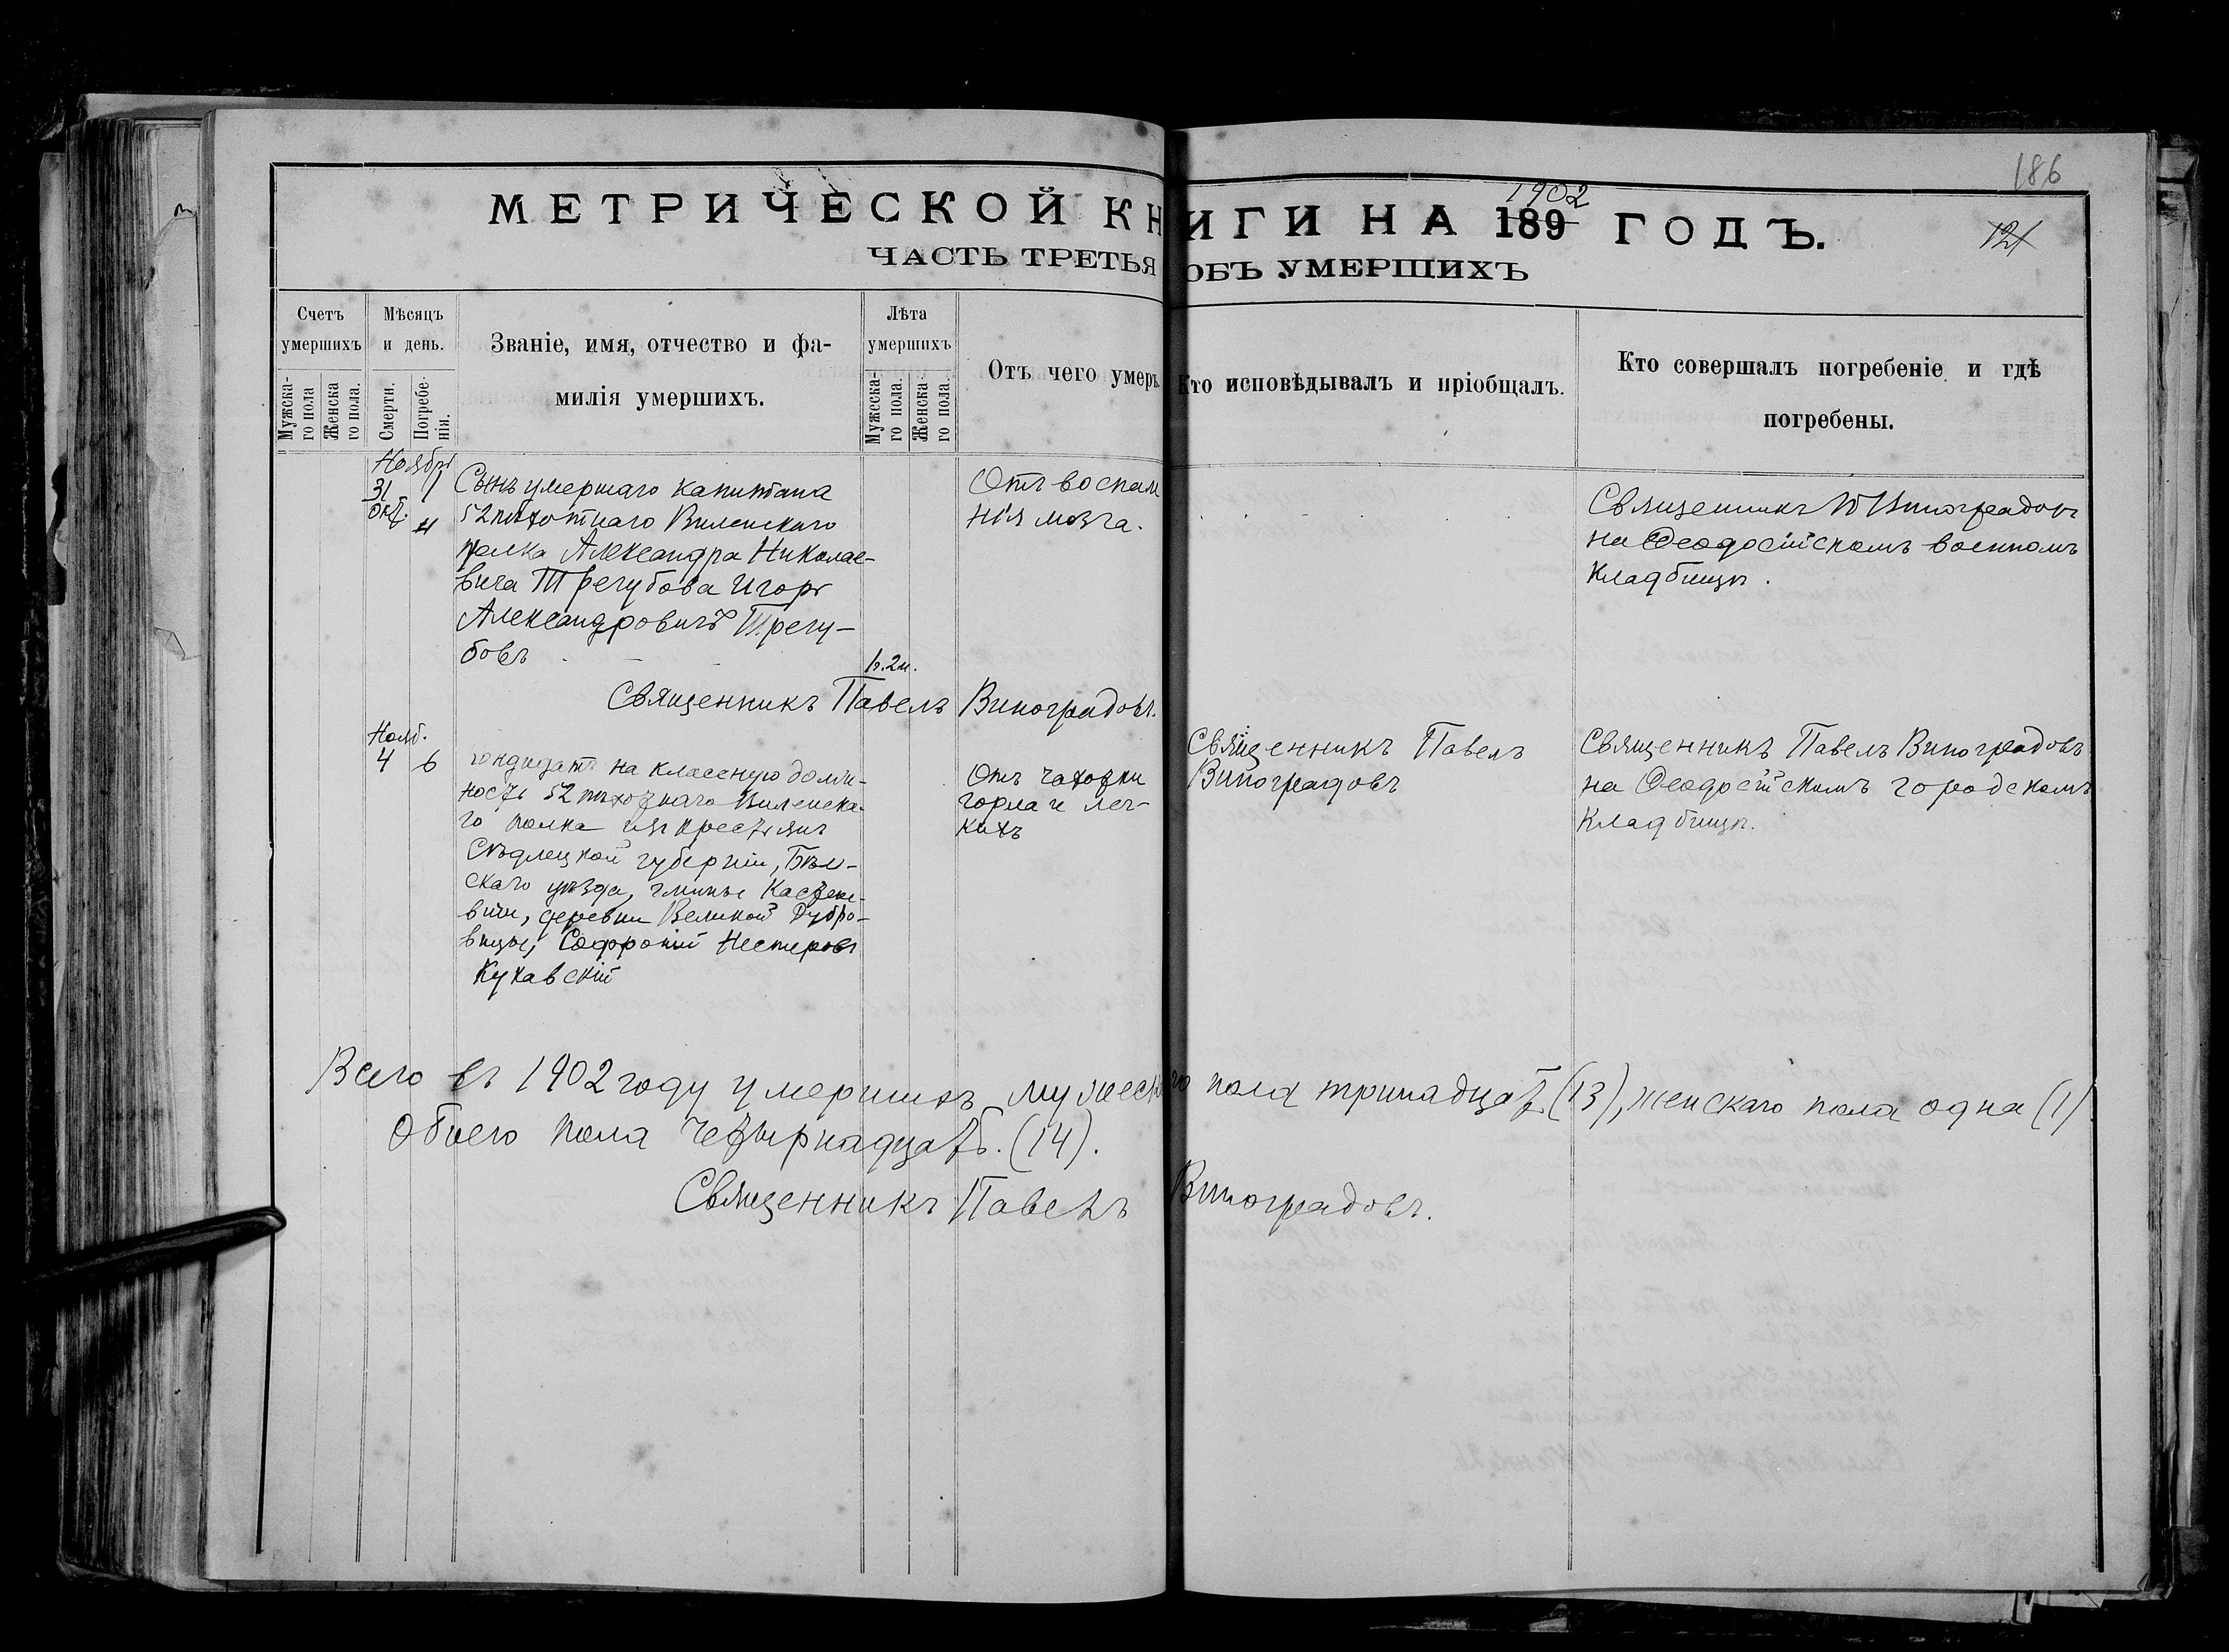 186
1902
МЕТРИЧЕСКОЙ КНИГИ НА 189 ГОДЪ.
121
ЧАСТЬ ТРЕТЬЯ ОБЪ УМЕРШИХЪ
Счетъ умершихъ
Мужскаго пола
Женскаго пола.
Мѣсяцъ и день.
Смерти.
Погребенія.
Званіе, имя, отчество и фамилія умершихъ.
Лѣта умершихъ
Мужескаго пола.
Женскаго пола.
Отъ чего умеръ.
Кто исповѣдывалъ и пріобщалъ.
Кто совершалъ погребеніе и гдѣ
погребены.
Ноября
31 1
окт.
Сынъ умершаго капитана
52 пѣхотнаго Виленскаго
полка Александра Николае-
вича Трегубова Игорь
Александровичъ Трегу-
бовъ
1г. 2м.
Отъ воспале
нія мозга.
Священникъ П Виноградовъ
на Ѳеодосійскомъ военномъ
кладбищѣ.
Священникъ Павелъ Виноградовъ.
Нояб.
4 6
кандидатъ на классную долж-
ность 52 пѣхотнаго Виленска-
го полка изъ крестьянъ
Сѣдлецкой губерніи, Бѣль-
скаго уѣзда, гмины
деревни Великой Дубро-
вицы, Софроній Нестеровъ
Кукавскій
Отъ чахотки
горла и лег-
кихъ
Священникъ Павелъ
Виноградовъ
Священникъ Павелъ Виноградовъ
на Ѳеодосійскомъ городскомъ
кладбищѣ.
Всего въ 1902 году умершихъ мужескаго пола тринадцать (13), женскаго пола одна (1)
Обоего пола четырнадцать. (14).
Священникъ Павелъ Виноградовъ.